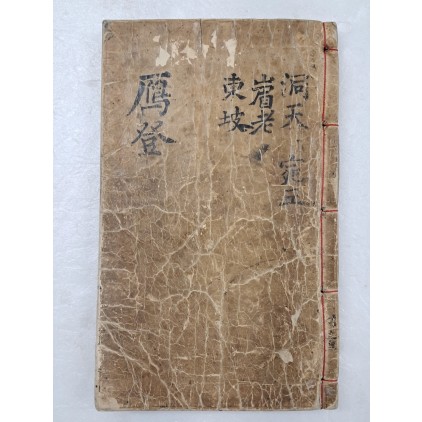 洞天、宛丘
眉老
東坡
鴈登